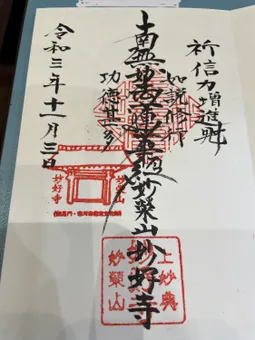 祈信力増進
如説修行
南無妙法蓮華経 妙榮山 妙好寺
功徳甚多
令和三年十一月三日
妙榮山
妙好寺
上妙典
妙榮山